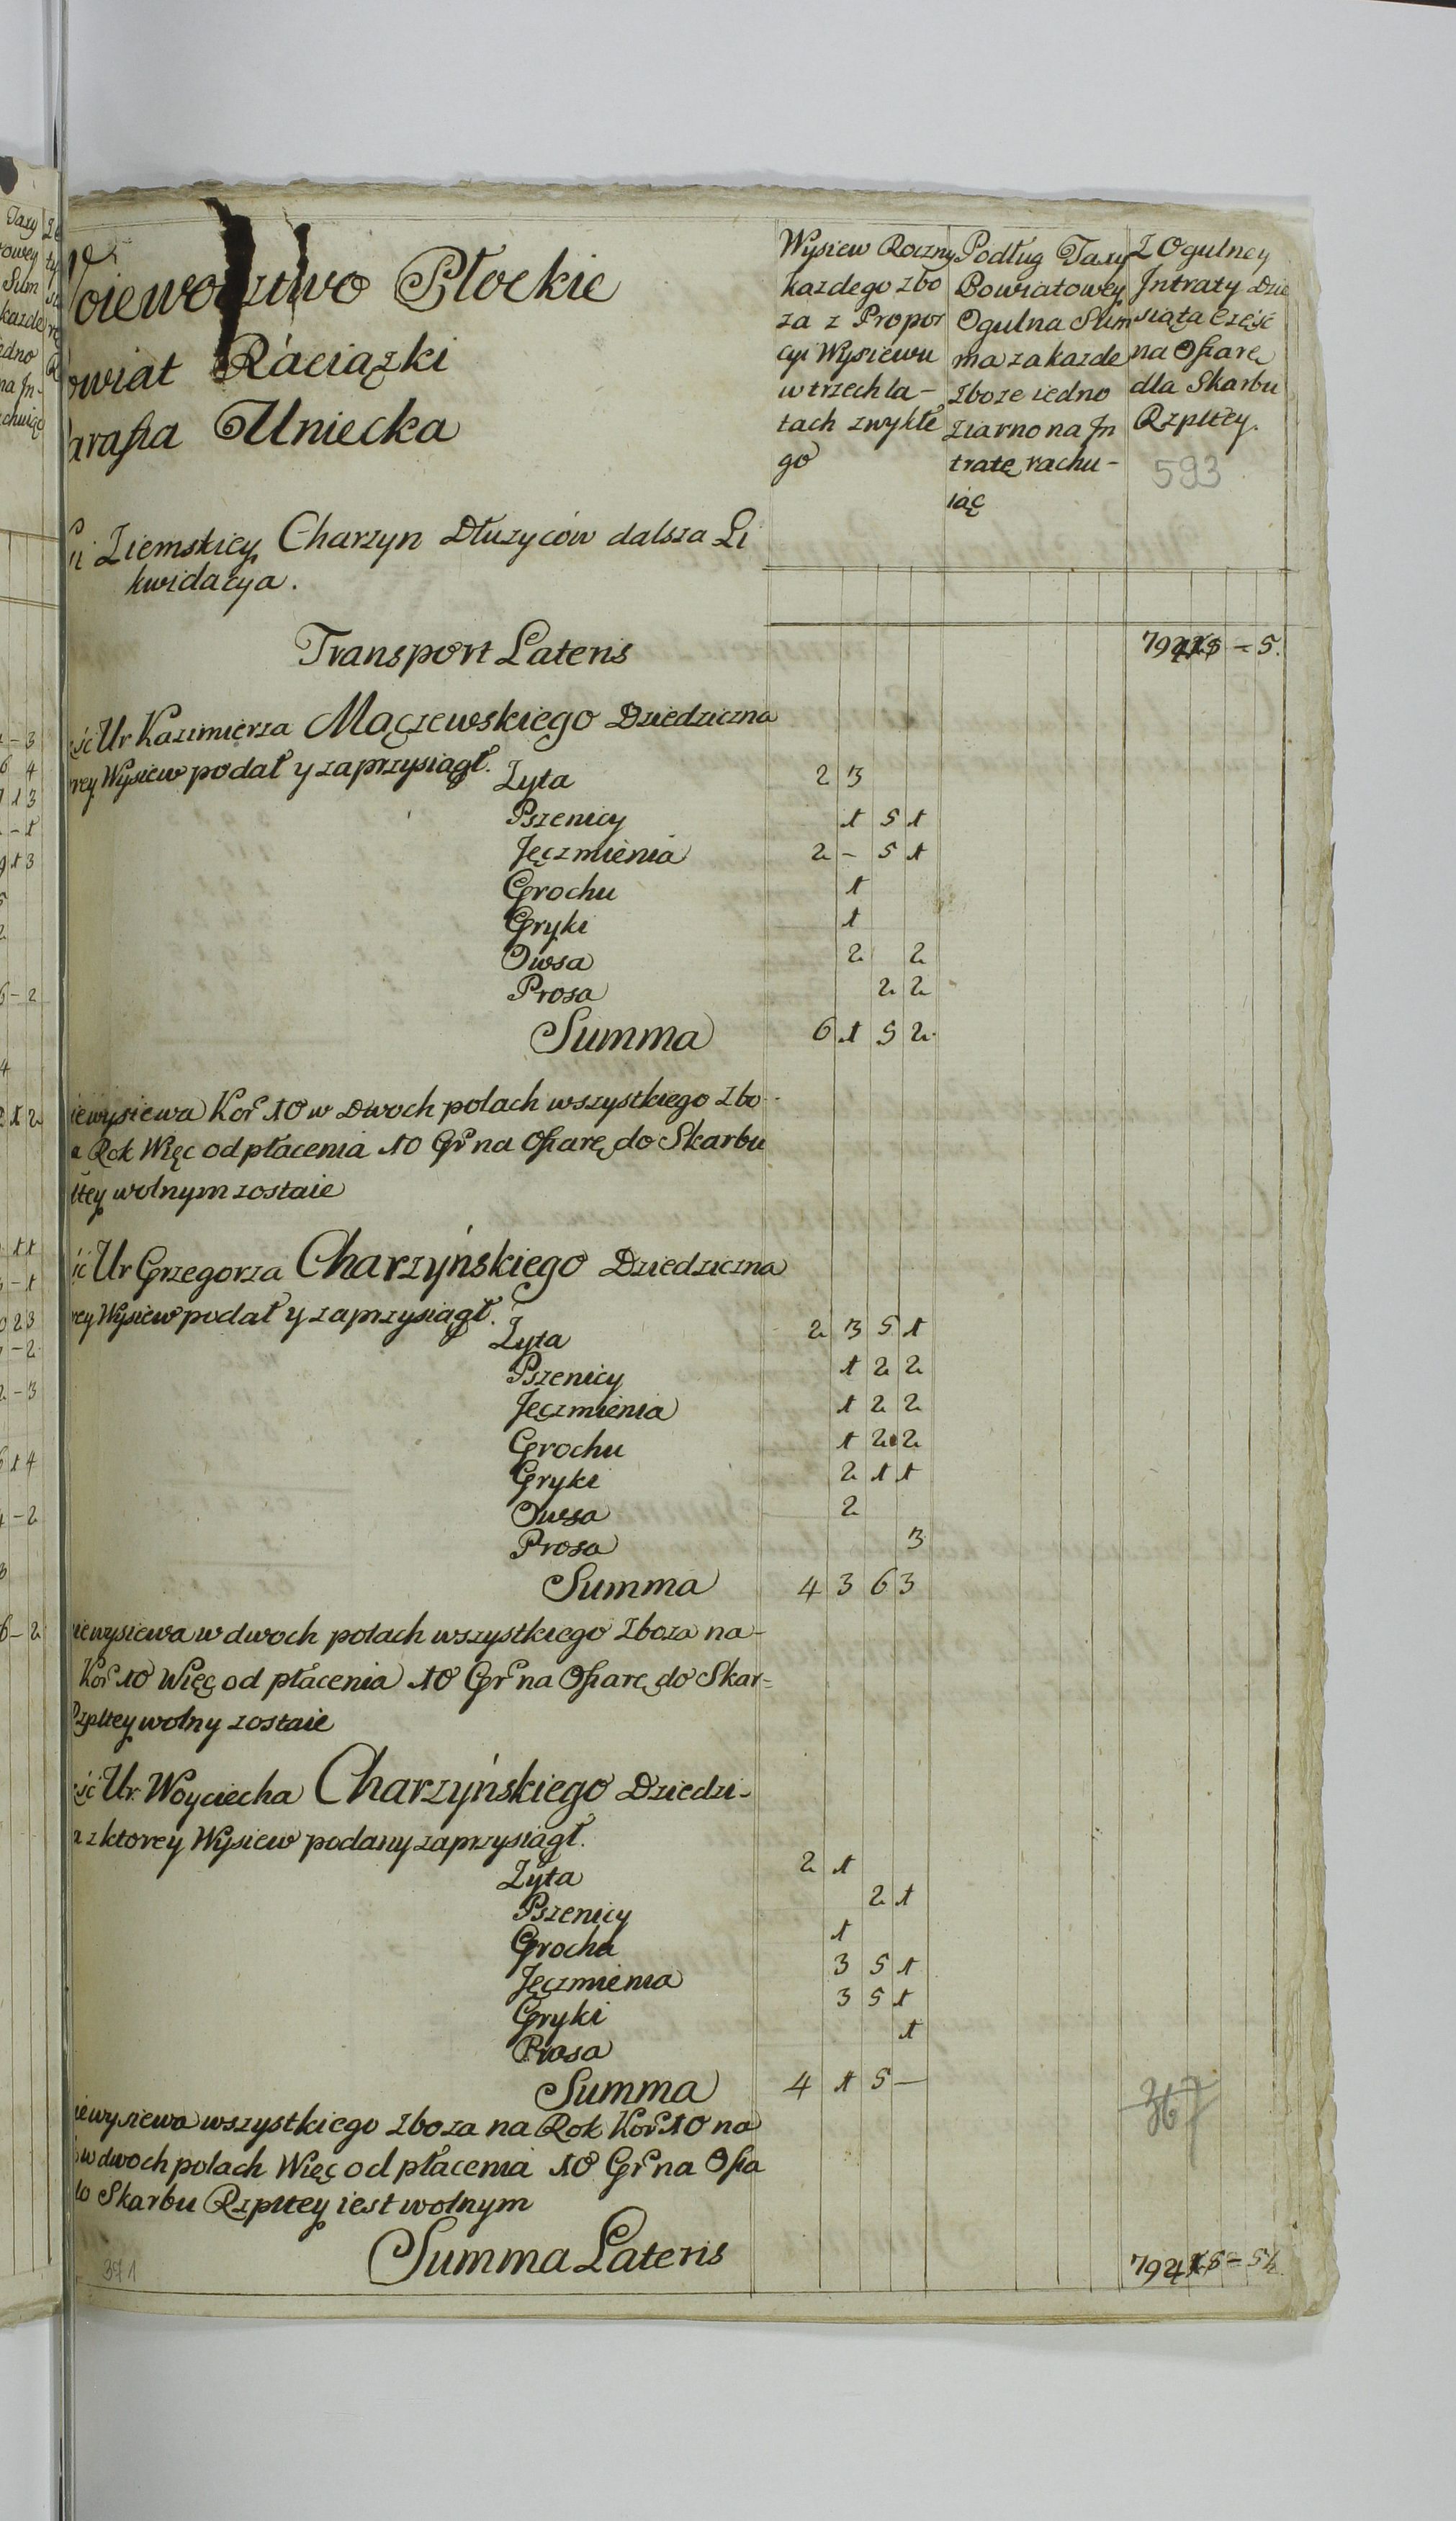 oiewodztwo Płockie
owiat Raciązki
arafia Uniecka
Wysiew Roczny
kazdego zbo
za z Propor
cyi Wysiewu
w trzech la-
tach zwykłe
go
Podług Taxy
Powiatowey
Ogulna Sum
ma za kazde
zboze iedno
ziarno na Jn
tratę rachu-
iąc
Z Ogulney
Jntraty Dzie
siąta Część
na Ofiarę
dla Skarbu
Rzpltey.
593
si Ziemskiey Charzyn Dłuzyców dalsza Li
kwidacya.
Transport Lateris - 5.
ść Ur Kazimierza Mączewskiego Dziedziczna
rey Wysiew podał y zaprzysiągł.
Zyta 2 3
Pszenicy 1 5 1
Jęczmienia 2 - 5 1
Grochu 1
Gryki 1
Owsa 2 2
Prosa 2 2
Summa 6 1 5 2
iewysiewa Kor 10 w Dwoch polach wszystkiego Zbo-
a Rok Więc od płacenia 10 Gr na Ofiarę do Skarbu
ltey wolnym zostaie
ść Ur Grzegorza Charzyńskiego Dziedziczna
rey Wysiew podał y zaprzysiągł.
Zyta 2 3 5 1
Pszenicy 1 2 2
Jęczmienia 1 2 2
Grochu 1 2 2
Gryki 2 1 1
Owsa 2
Prosa 3
Summa 4 3 6 3
iewysiewa w dwoch polach wszystkiego Zboza na-
Kor 10 Więc od płacenia 10 Gr na Ofiarę do Skar=
Rzpltey wolny zostaie
ść Ur. Woyciecha Charzyńskiego Dziedzi-
a z ktorey Wysiew podany zaprzysiągł.
Zyta 2 1
Pszenicy 2 1
Grochu 1
Jęczmienia 3 5 1
Gryki 3 5 1
Prosa 1
Summa 4 1 5 -
367
iewysiewa wszystkiego Zboza na Rok Kor 10 na
w dwoch polach Więc od płacenia 10 Gr na Ofia
do Skarbu Rzpltey iest wolnym
Summa Lateris
371